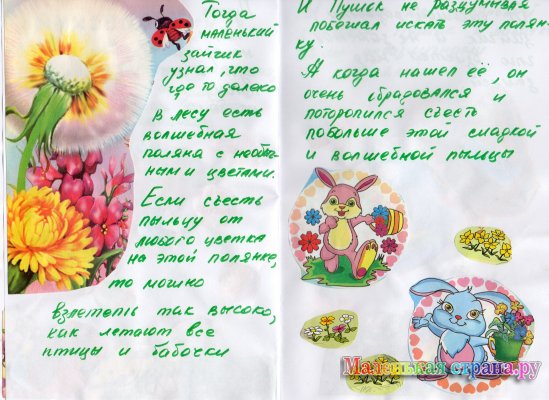 Тогда
маленький
зайчик
узнал, что
где то далеко
в лесу есть
волшебная
поляна с необыч
ными цветами.
Если съесть
пыльцу от
любого цветка
на этой полянке,
то можно
взлететь так высоко,
как летают все
птицы и бабочки
и Пушок не раздумывая
побежал искать эту полян-
ку.
А когда нашел её, он
очень обрадовался и
поторопился съесть
побольше этой сладкой
и волшебной пыльцы
Маленькая страна.ру